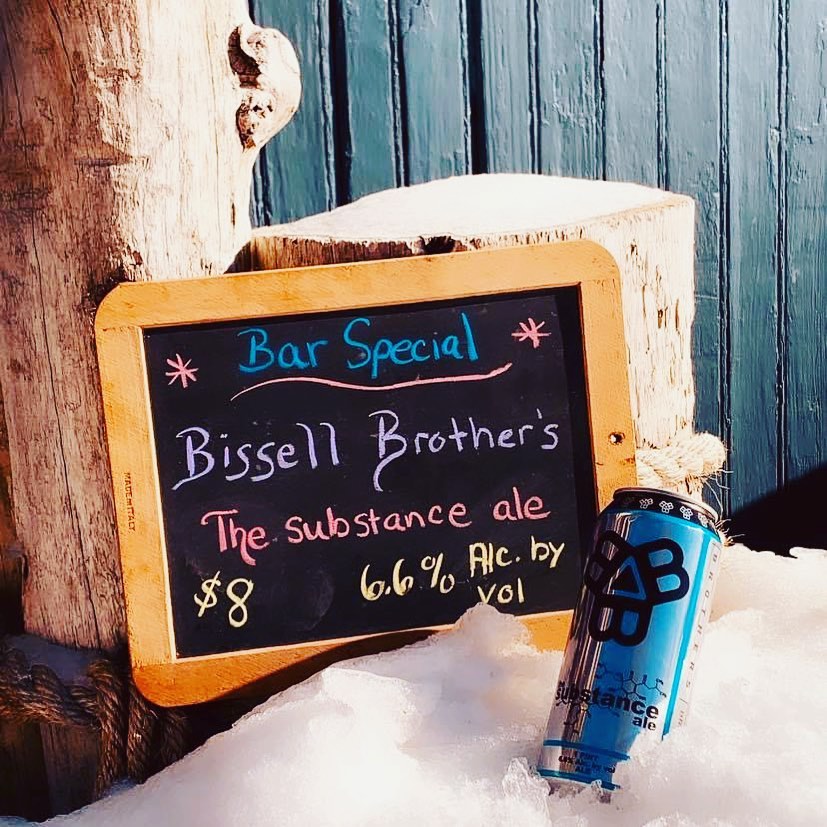 * Bar Special *
Bissell Brother's
The substance ale
$8 6.6% Alc. by
vol
MADE IN ITALY
BBB
BROTHERS
substance
ale